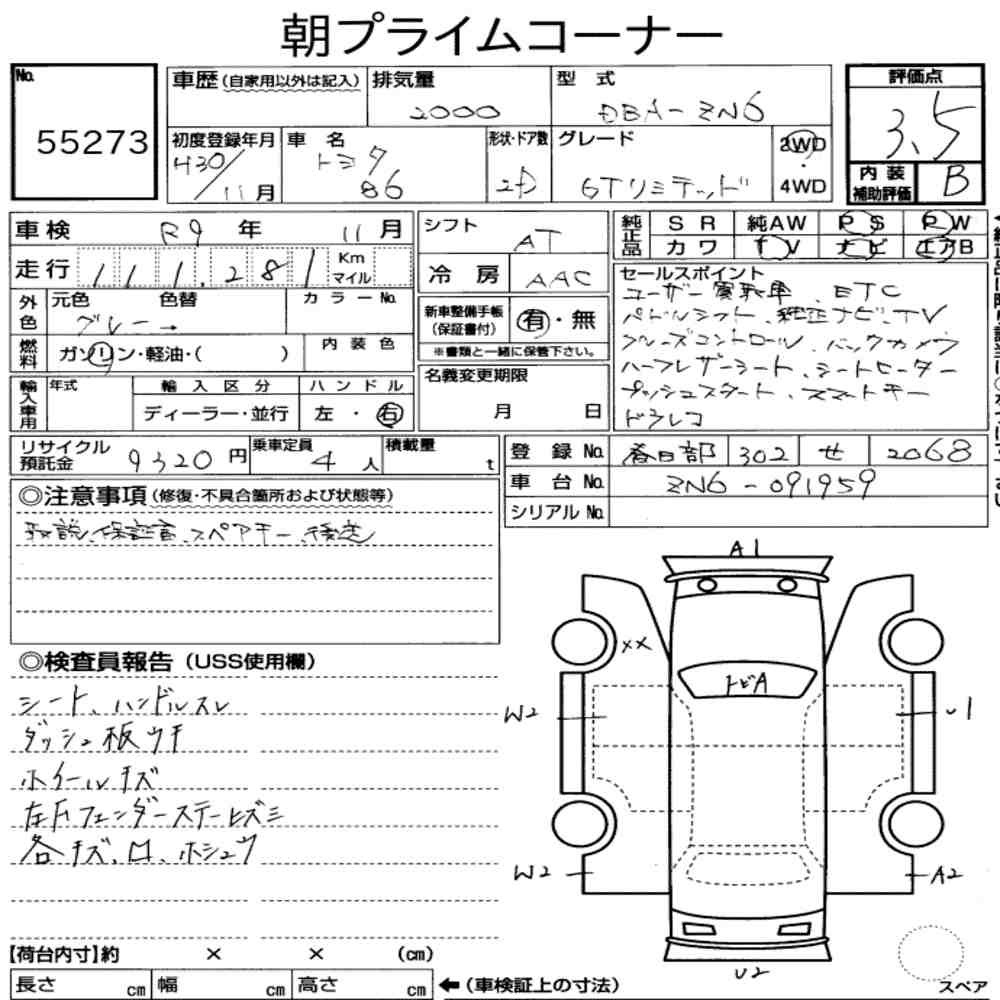 朝プライムコーナー
No.
55273
車歴(自家用以外は記入)
排気量
2000
型式
DBA-ZN6
評価点
3.5
初度登録年月
H30/11月
車名
トヨタ
86
形状・ドア数
2D
グレード
GTリミテッド
2WD
・
4WD
内装
補助評価
B
車検 R9年 11月
シフト
AT
純正品
SR 純AW PS PW
カワ TV ナビ エアB
走行 111,281 Km マイル
冷房 AAC
セールスポイント
ユーザー買取車、ETC
パドルシフト、純正ナビ、TV
クルーズコントロール、バックカメラ
ハーフレザーシート、シートヒーター
プッシュスタート、スマートキー
ドラレコ
外色
元色 色替
グレー→
カラーNo.
新車整備手帳
(保証書付)
有・無
※書類と一緒に保管下さい。
燃料
ガソリン・軽油・( )
内装色
名義変更期限
月 日
輸入車用
年式
輸入区分
ディーラー・並行
ハンドル
左・右
リサイクル
預託金
9320円
乗車定員
4人
積載量
t
登録No. 春日部 302 せ 2068
車台No. ZN6-091959
シリアルNo.
◎注意事項(修復・不具合箇所および状態等)
取説、保証書、スペアキー、後送
◎検査員報告(USS使用欄)
シート、ハンドルスレ
ダッシュ板ウキ
ホイールキズ
左Fフェンダーステーヒズミ
各キズ、凹、ホシュウ
A1
XX
トビA
W2
U1
W2
A2
U2
【荷台内寸】約 × × (cm)
長さ cm 幅 cm 高さ cm
←(車検証上の寸法)
スペア